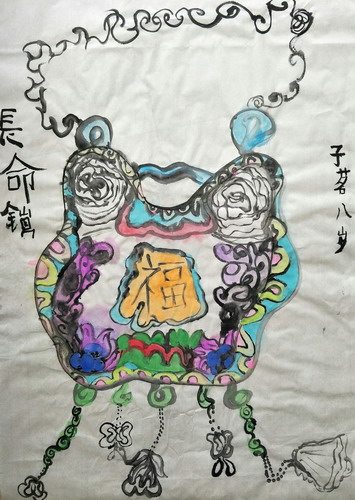 長命鎖
福
子茗八岁